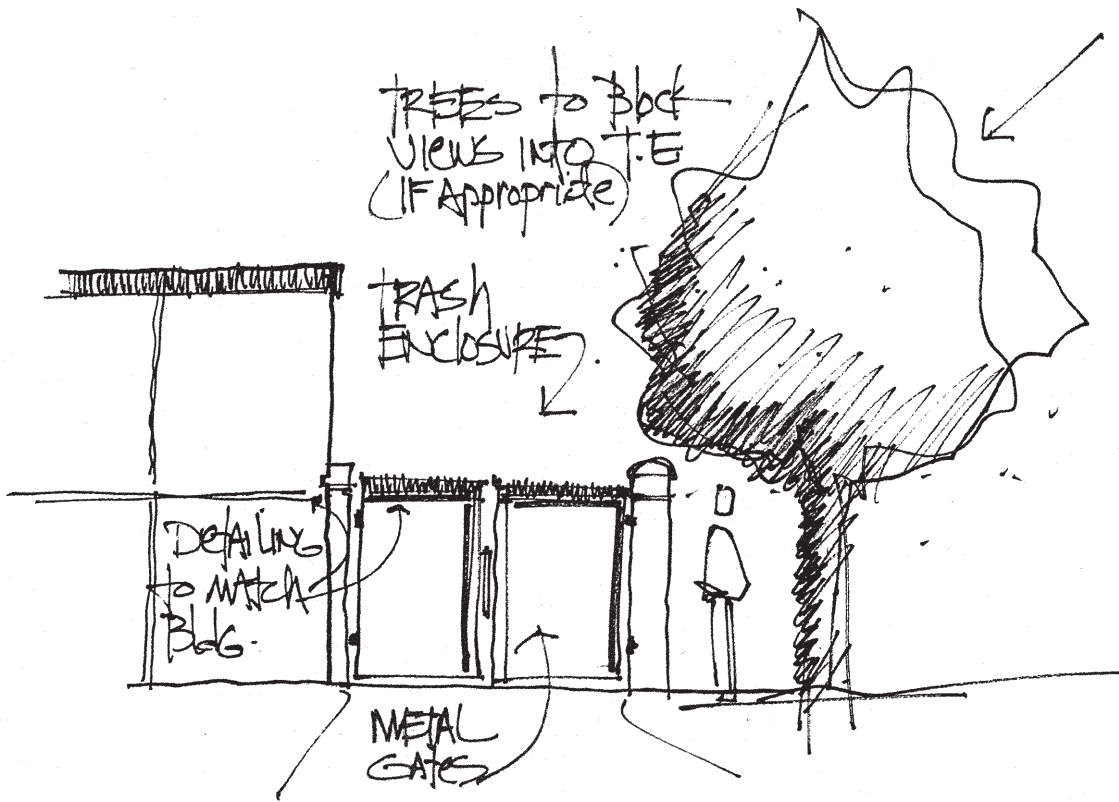 TREES to Block
VIEWS INTO T.E
(IF Appropriate)
TRASH
ENCLOSURE
DETAILING
to MATCH
Bldg.
METAL
GATES